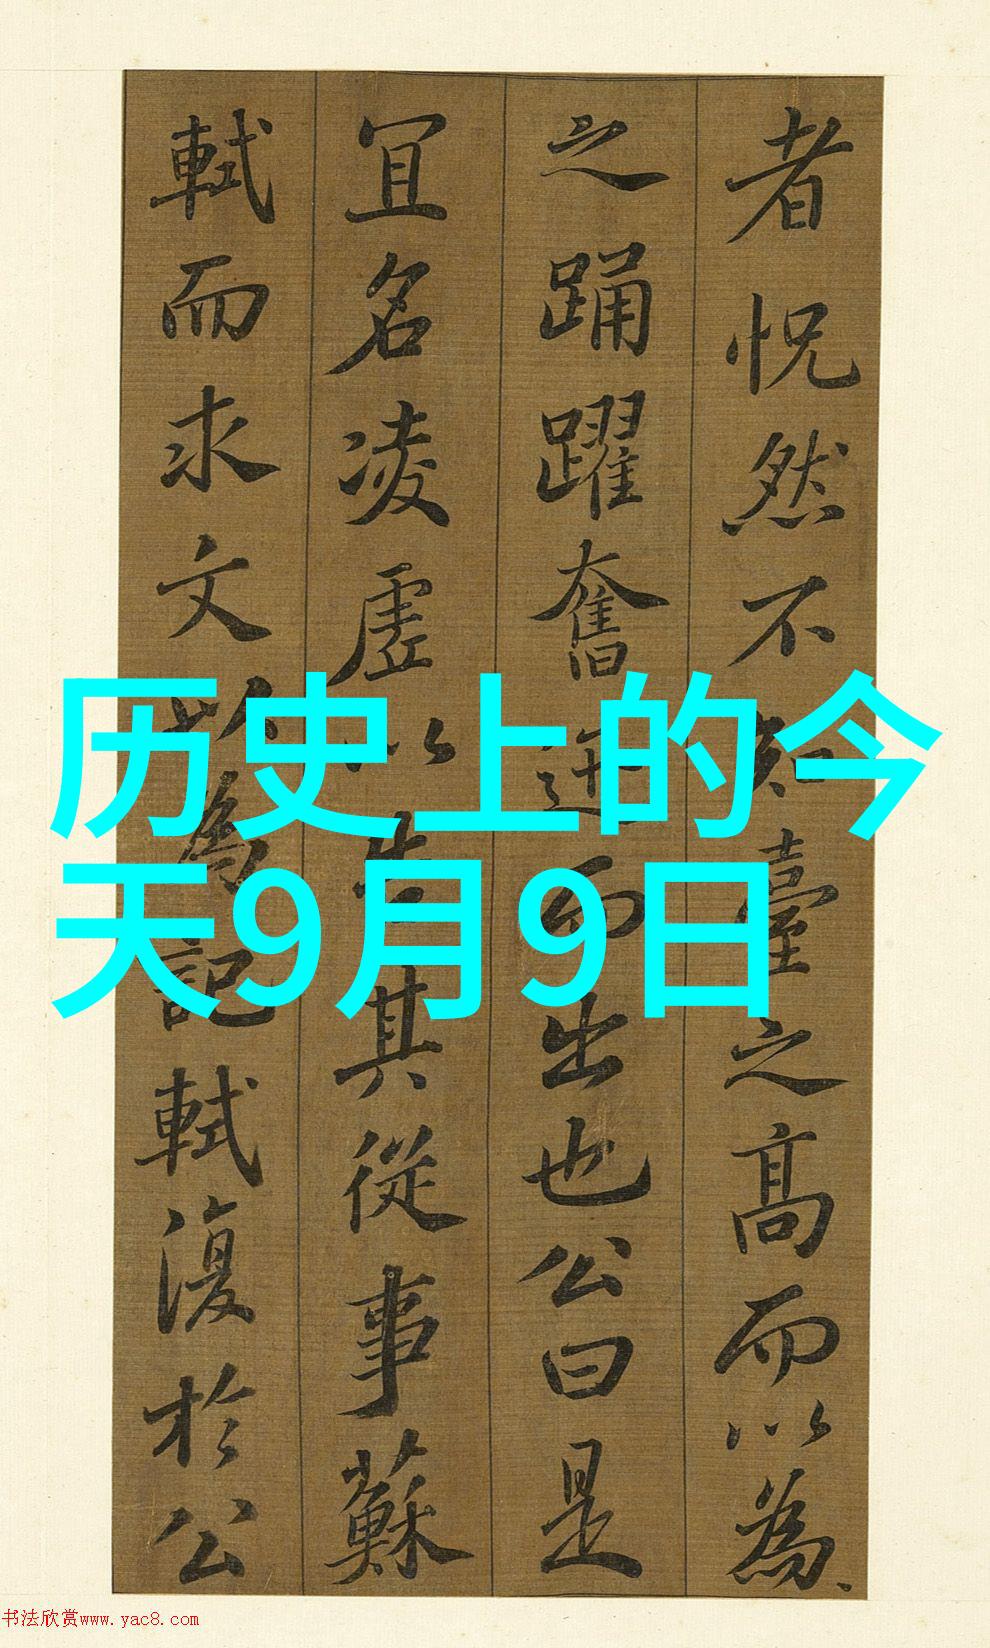 者怳然不知臺之高而以為
之踊躍奮迅而出也公曰是
宜名凌虛以告其從事蘇
軾而求文以為記軾復於公
历史上的今
天9月9日
书法欣赏www.yac8.com